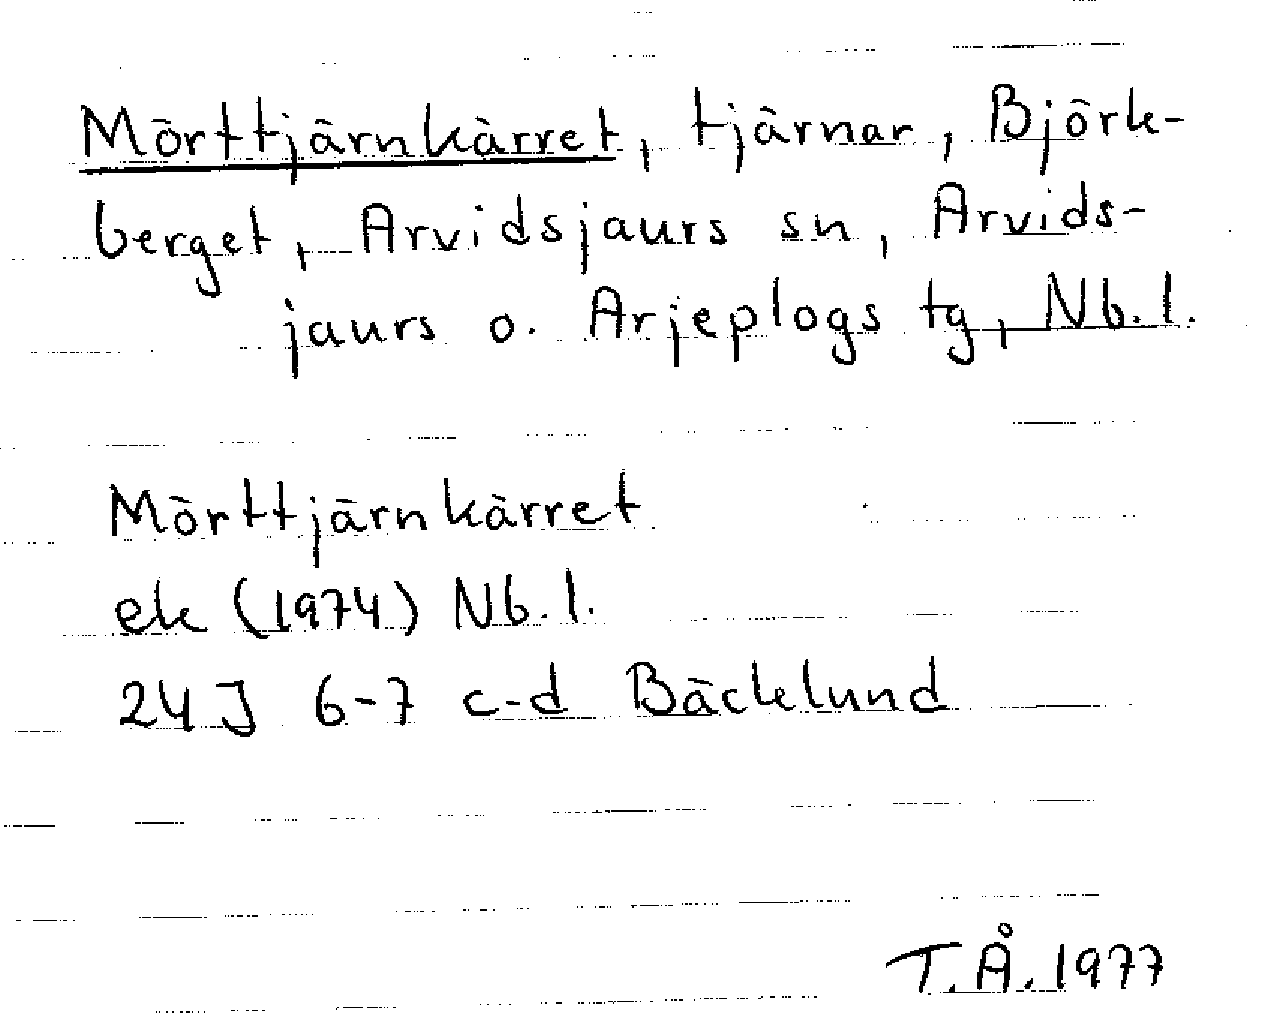 Mörttjärnkärret, tjärnar, Björk-
berget, Arvidsjaurs sn, Arvids-
jaurs o. Arjeplogs tg, Nb. l.
Mörttjärnkärret
ek (1974) Nb. l.
24 J 6-7 c-d Bäcklund
T.Å. 1977